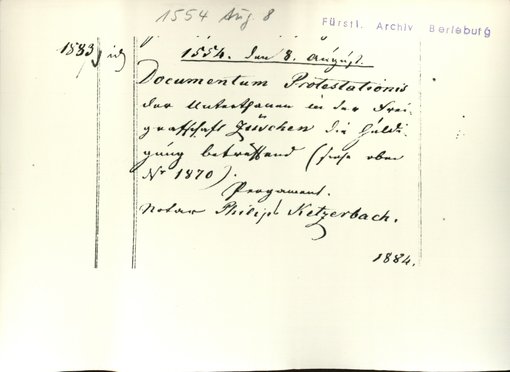 1554 Aug 8
Fürstl. Archiv Berleburg
1883
1554. den 8. August.
Documentum Protestationis
der Unterthanen in der Frei-
grafschaft Züschen die Huldi-
gung betreffend (siehe oben
Nr 1870).
Pergament.
Notar Philips Ketzerbach.
1884.